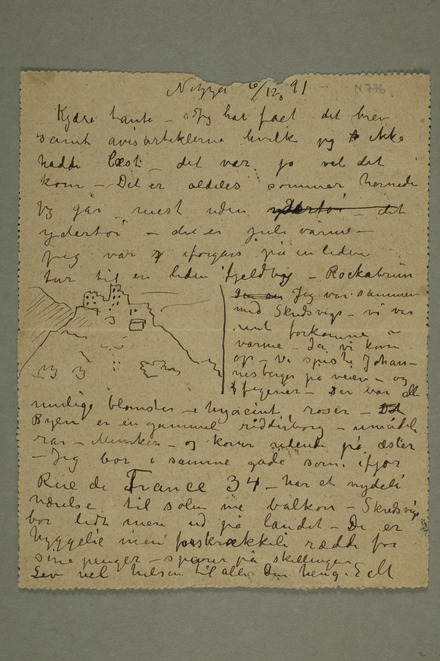 Nizza 6/12 91
N 776
Kjære tante – Jeg har fået dit brev
samt avisartiklerne hvilke jeg ikke
hadde læst – det var jo vel det
kom – Det er aldeles sommer hernede
Jeg går mest uden ydertøi – det
ydertøi – det er juli varme –
Jeg var iforgårs på en liden
tur til en liden fjeldby – Rockabrun
Jeg var sammen
med Skredsvig – vi var
rent forkomne a
varme – Da vi kom
op – Vi spiste Johan-
nesbrød på veien – og
figener – Der var alle
mulige blomster – hyacint, roser – Det
Byen er en gammel ridderborg –
rar – Munker – og koner ridende på æsler
– Jeg bor i samme gade som ifjor
Rue de France 34 – har et nydeli
værelse til solen me balkon – Skredsvig
bor lidt men ud på landet – De er
hyggelie men forskrækkeli rædde for
sine penger – sparer på skillingen
Lev vel hilsen til alle Din heng. E M